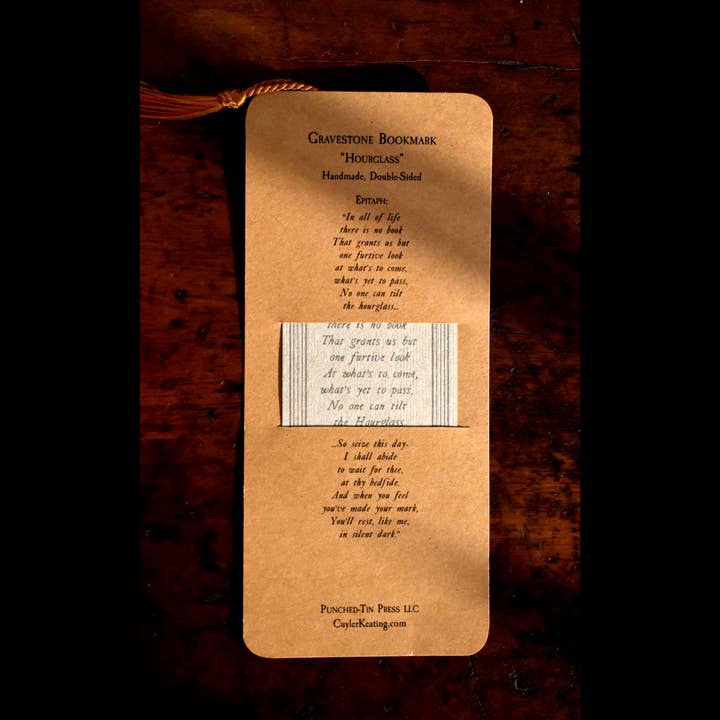 Gravestone Bookmark
"Hourglass"
Handmade, Double-Sided
Epitaph:
"In all of life
there is no book
That grants us but
one furtive look
at what's to come,
what's yet to pass,
No one can tilt
the hourglass...
there is no book
That grants us but
one furtive look
At what's to come,
what's yet to pass,
No one can tilt
the Hourglass...
...So seize this day-
I shall abide
to wait for thee,
at thy bedside.
And when you feel
you've made your mark,
You'll rest, like me,
in silent dark."
Punched-Tin Press LLC
CuylerKeating.com